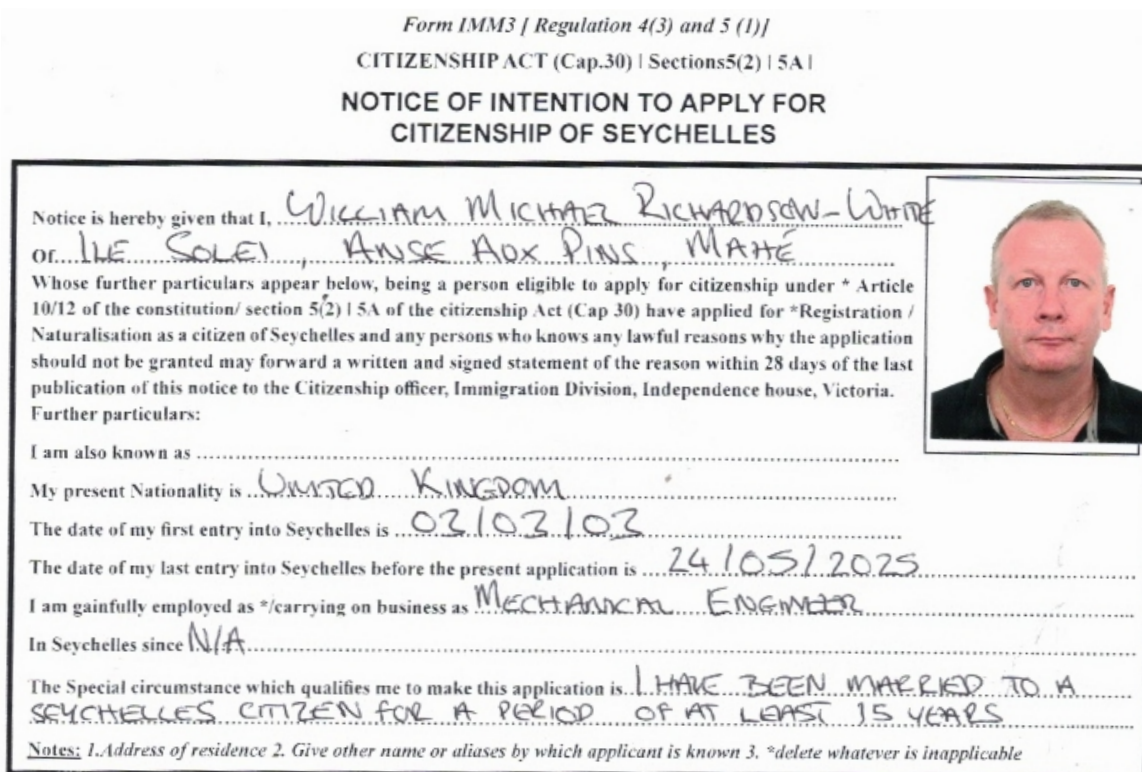 Form IMM3 [ Regulation 4(3) and 5 (1)]
CITIZENSHIP ACT (Cap.30) | Sections5(2) | 5A |
NOTICE OF INTENTION TO APPLY FOR
CITIZENSHIP OF SEYCHELLES
Notice is hereby given that I, WILLIAM MICHAEL RICHARDSON-WHITE
Of ILE SOLEI, ANSE AUX PINS, MAHÉ
Whose further particulars appear below, being a person eligible to apply for citizenship under * Article
10/12 of the constitution/ section 5(2) | 5A of the citizenship Act (Cap 30) have applied for *Registration /
Naturalisation as a citizen of Seychelles and any persons who knows any lawful reasons why the application
should not be granted may forward a written and signed statement of the reason within 28 days of the last
publication of this notice to the Citizenship officer, Immigration Division, Independence house, Victoria.
Further particulars:
I am also known as
My present Nationality is UNITED KINGDOM
The date of my first entry into Seychelles is 03/03/03
The date of my last entry into Seychelles before the present application is 24/05/2025
I am gainfully employed as */carrying on business as MECHANICAL ENGINEER
In Seychelles since N/A
The Special circumstance which qualifies me to make this application is I HAVE BEEN MARRIED TO A
SEYCHELLES CITIZEN FOR A PERIOD OF AT LEAST 15 YEARS
Notes: 1.Address of residence 2. Give other name or aliases by which applicant is known 3. *delete whatever is inapplicable